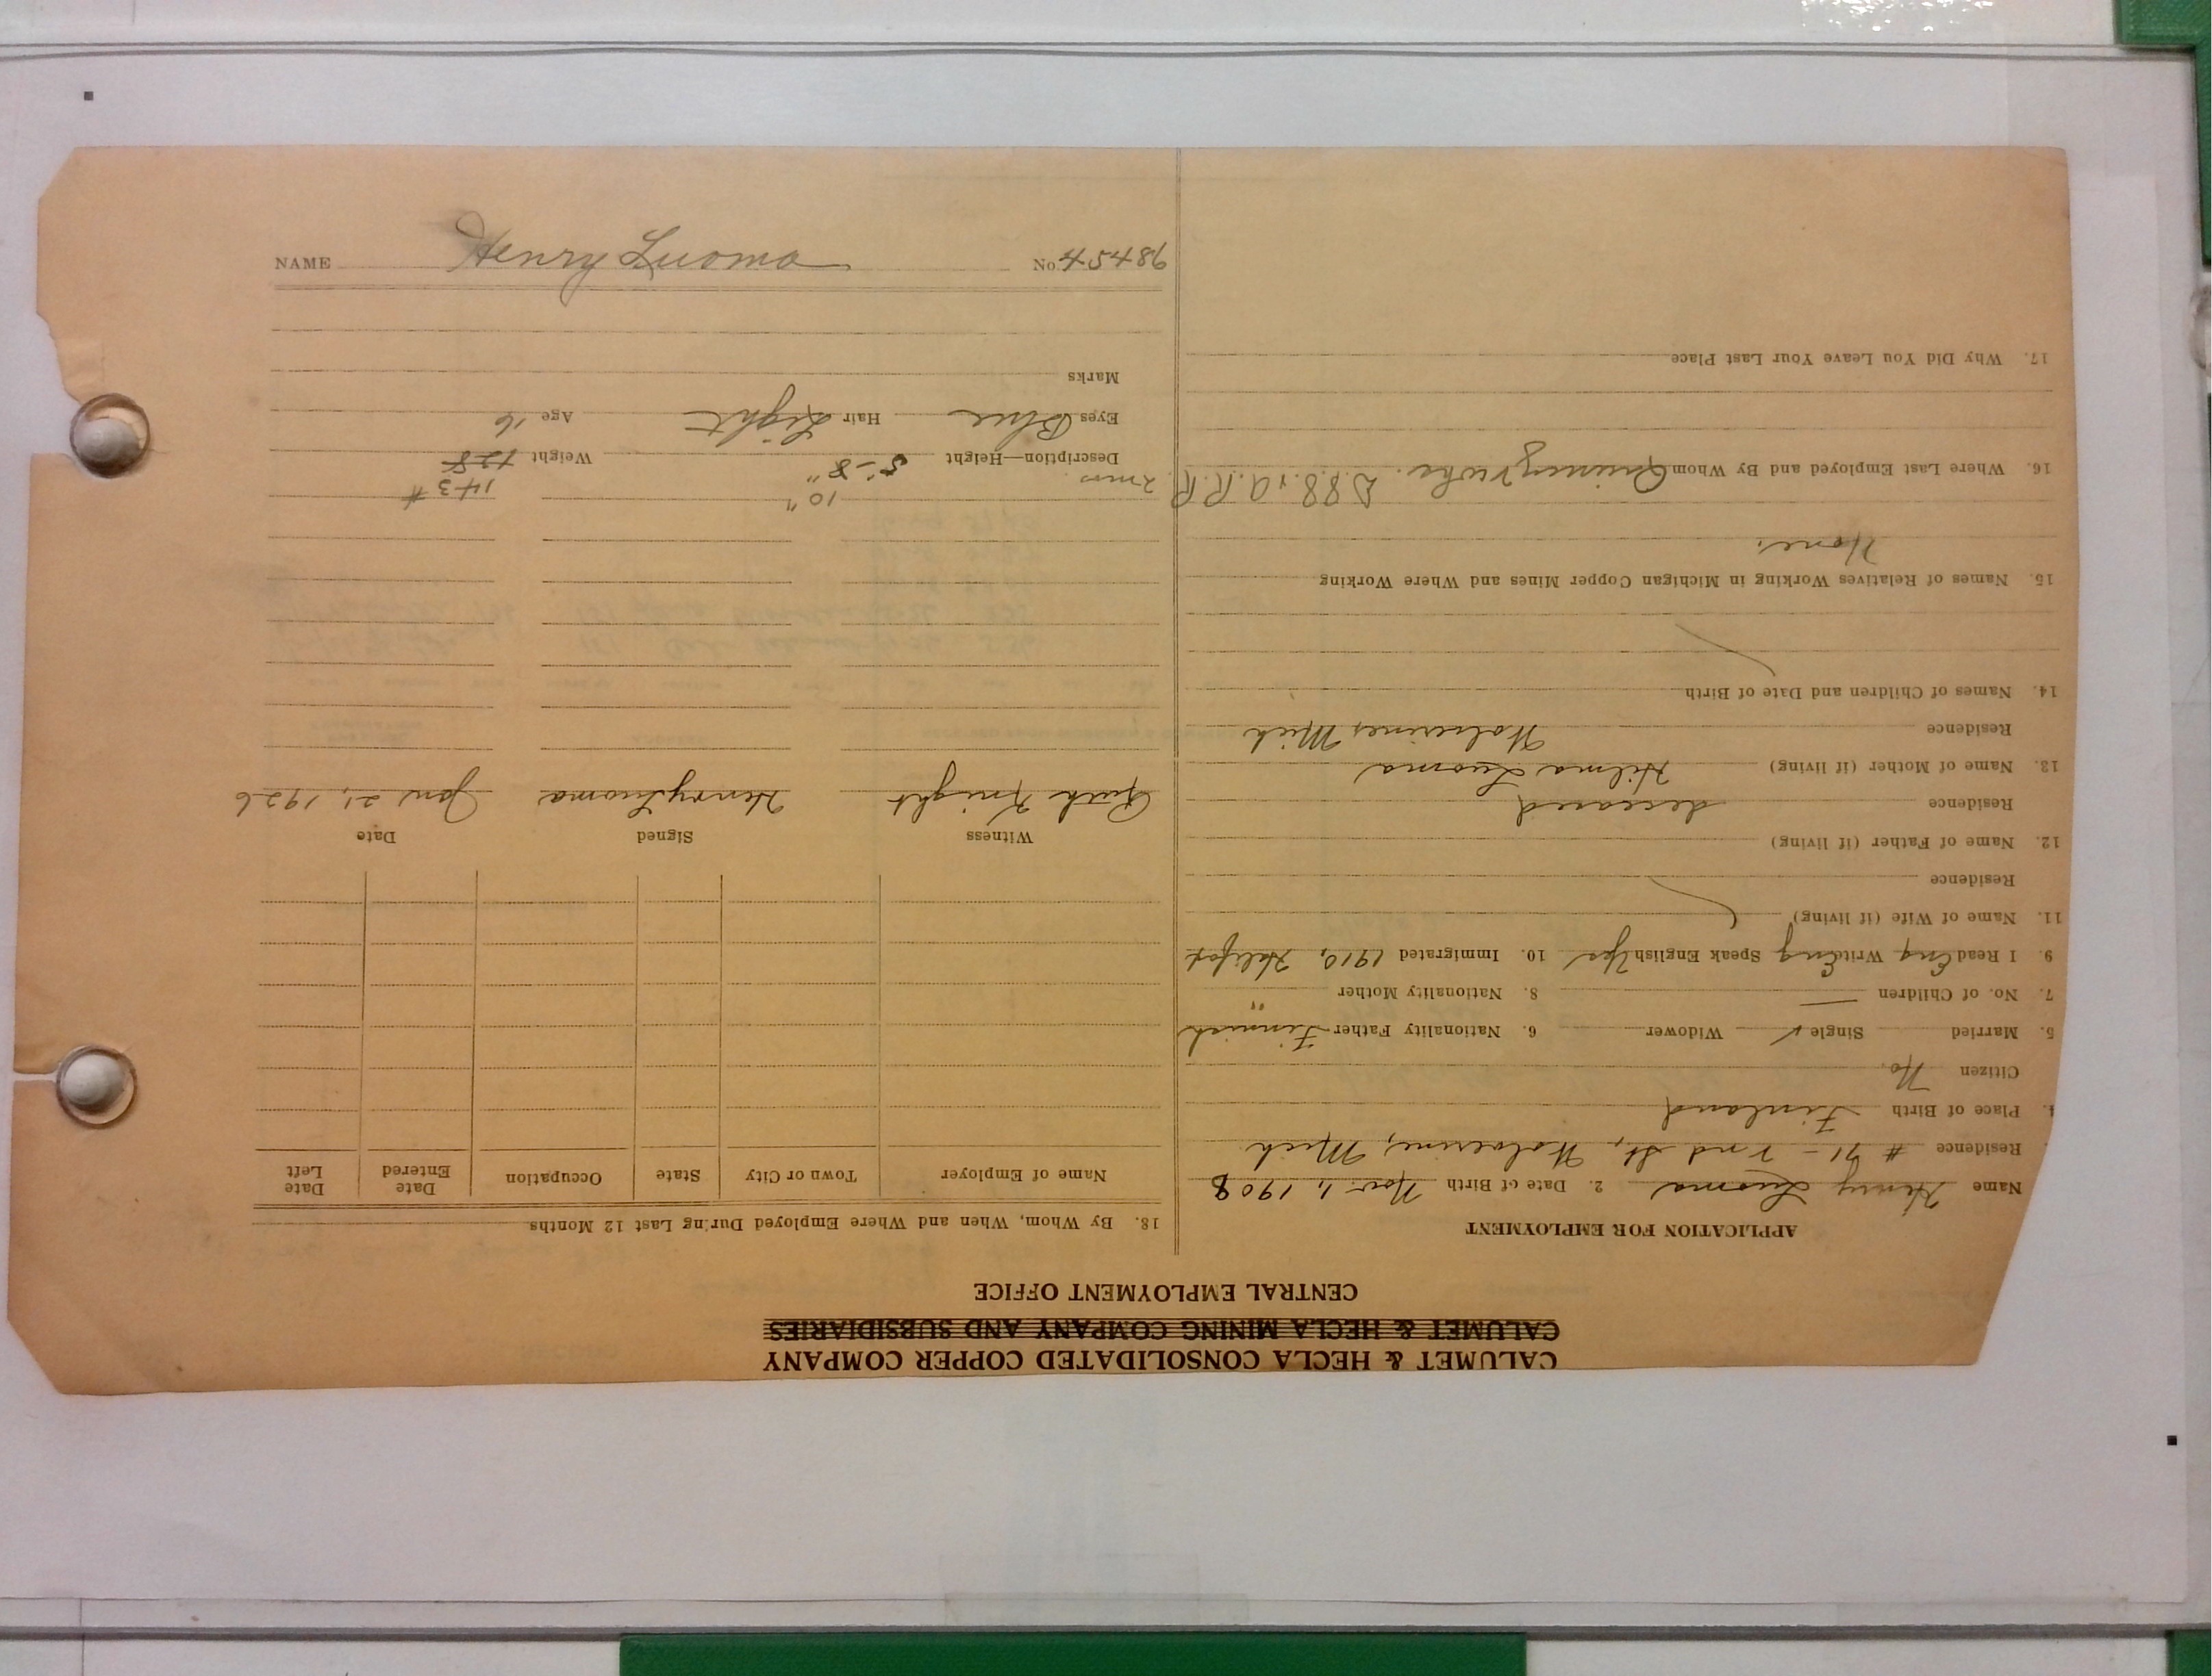 CALUMET & HECLA CONSOLIDATED COPPER COMPANY
CALUMET & HECLA MINING COMPANY AND SUBSIDIARIES
CENTRAL EMPLOYMENT OFFICE
APPLICATION FOR EMPLOYMENT
Name Henry Luoma 2. Date of Birth Nov. 1, 1908
Residence # 71 - 2nd St., Wolverine, Mich
4. Place of Birth Finland
Citizen No.
5. Married Single ✓ Widower 6. Nationality Father Finnish
7. No. of Children — 8. Nationality Mother "
9. I Read Eng Write Eng Speak English Yes 10. Immigrated 1910, Halifax
11. Name of Wife (if living)
Residence
12. Name of Father (if living)
Residence deceased
13. Name of Mother (if living) Hilma Luoma
Residence Wolverine, Mich
14. Names of Children and Date of Birth
15. Names of Relatives Working in Michigan Copper Mines and Where Working
None.
16. Where Last Employed and By Whom Quincy D.S.S. & A.R.R.
17. Why Did You Leave Your Last Place
18. By Whom, When and Where Employed During Last 12 Months
Name of Employer Town or City State Occupation Date Entered Date Left
Witness Signed Date
Ruth Knight Henry Luoma Jan 21, 1926
10" 143 #
Description—Height 5'-8" Weight 128
Eyes Blue Hair Light Age 16
Marks
NAME Henry Luoma No. 45486